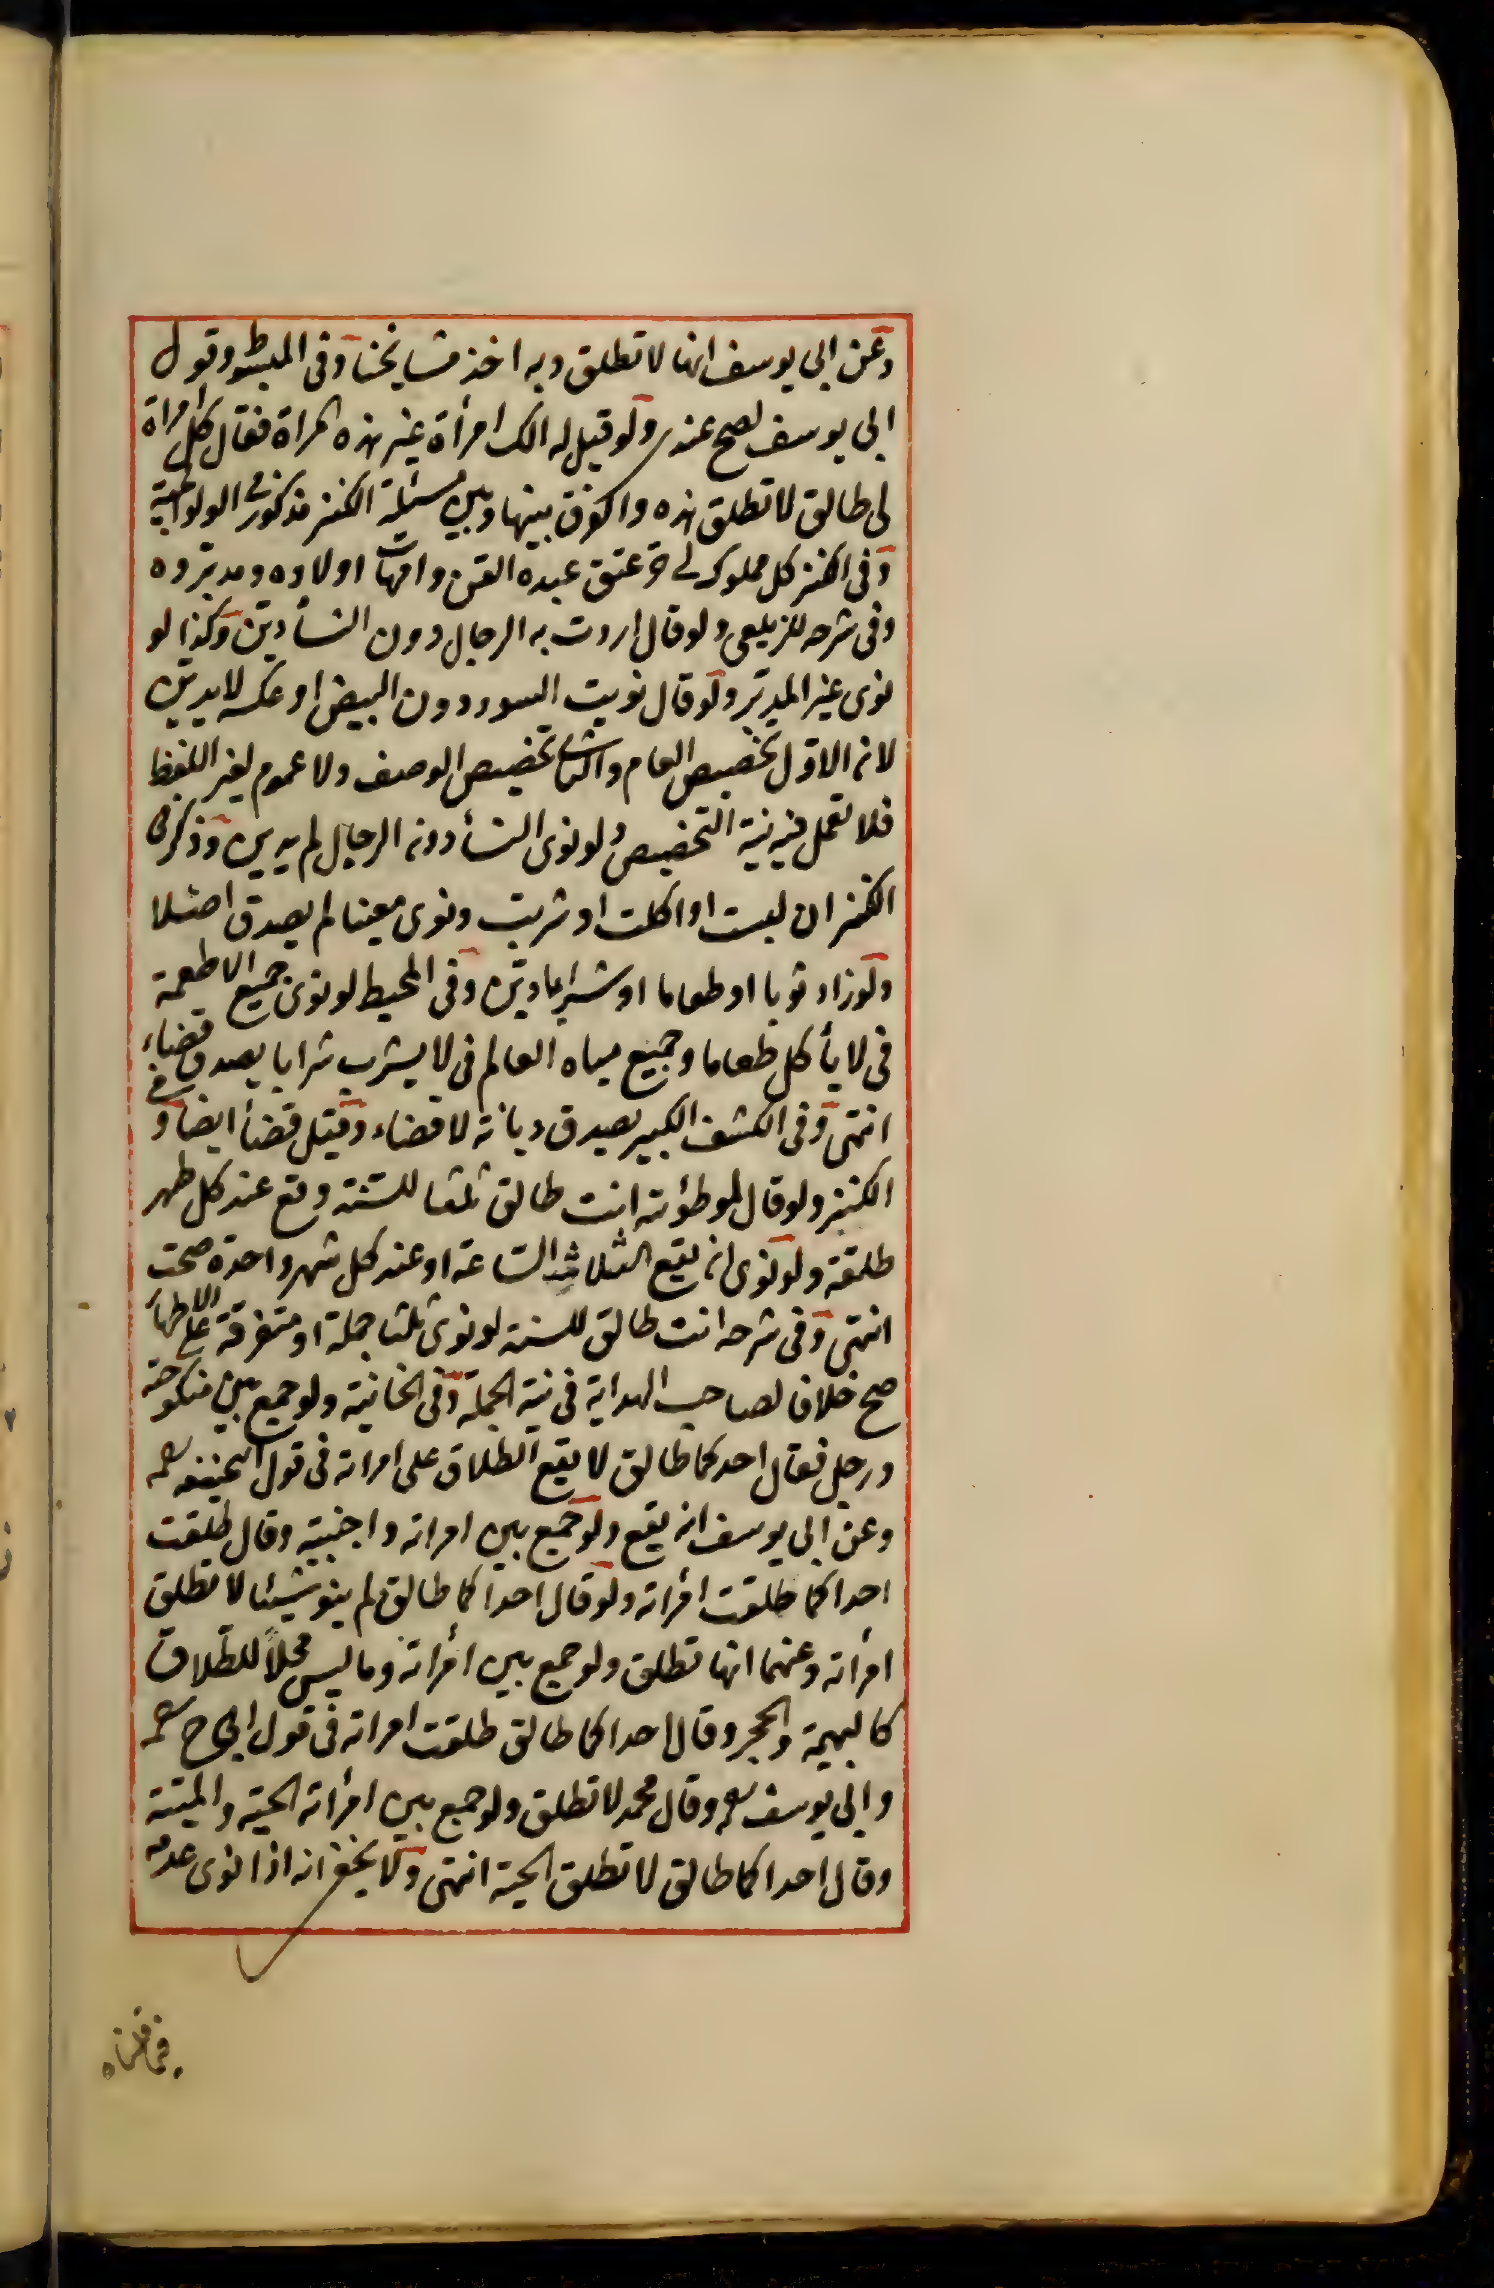 وعن ابي يوسف انها لا تطلق وبه اخذ مشايخنا وفي المبسوط وقول
ابي يوسف اصح عندي ولو قيل له الك امرأة غير هذه المراة فقال كل امراة
لي طالق لا تطلق هذه والفرق بينها وبين مسئلة الكنز مذكور في الولوالجية
وفي الكنز كل مملوك لي حر عتق عبده القن وامهات اولاده ومدبروه
وفي شرحه للزيلعي ولو قال اردت به الرجال دون النسأ دين وكذا لو
نوى غير المدبر ولو قال نويت السود دون البيض او عكسه لا يدين
لان الاول تخصيص العام والثاني تخصيص الوصف ولا عموم لغير اللفظ
فلا تعمل فيه نية التخصيص ولو نوى النسأ دون الرجال لم يدين وذكر في
الكنز ان لبست او اكلت او شربت ونوى معينا لم يصدق اصلا
ولو زاد ثوبا او طعاما او شرابا دين وفي المحيط لو نوى جميع الاطعمة
في لا يأكل طعاما وجميع مياه العالم في لا يشرب شرابا يصدق قضاء
انتهى وفي الكشف الكبير يصدق ديانة لا قضاء وقيل قضأ ايضا وفي
الكنز ولو قال لموطؤته انت طالق ثلثا للسنة وقع عند كل طهر
طلقة ولو نوى ان يقع الثلاث الساعة او عند كل شهر واحدة صحت
انتهى وفي شرحه انت طالق للسنة لو نوى ثلثا جملة او متفرقة على الاطهار
صح خلافا لصاحب الهداية في نية الجملة وفي الخانية ولو جمع بين منكوحته
ورجل فقال احدكما طالق لا يقع الطلاق على امراته في قول ابيحنيفه رحمه
وعن ابي يوسف انه يقع ولو جمع بين امراته واجنبية وقال طلقت
احداكما طلقت امرأته ولو قال احداكما طالق لم ينو شيئا لا تطلق
امرأته وعنهما انها تطلق ولو جمع بين امرأته وما ليس محلاً للطلاق
كالبهيمة والحجر وقال احداكما طالق طلقت امراته في قول ابي ح رحمه
وابي يوسف رحمه وقال محمد لا تطلق ولو جمع بين امرأته الحية والميتة
وقال احداكما طالق لا تطلق الحية انتهى ولا يخفى انه اذا نوى عدمه